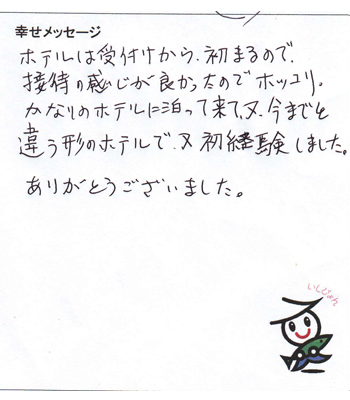 幸せメッセージ
ホテルは受付けから、初まるので、
接待の感じが良かったのでホッコリ。
かなりのホテルに泊って来て、又、今までと
違う形のホテルで、又初経験しました。
ありがとうございました。